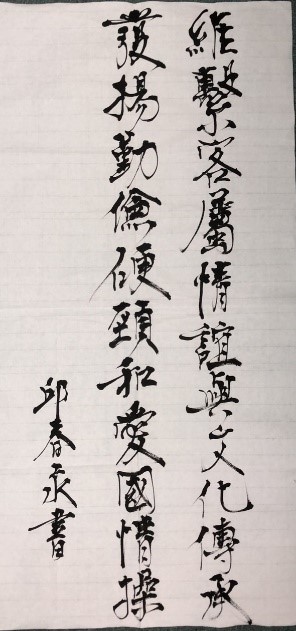 維繫客屬情誼與文化傳承
護揚勤儉硬頸和愛國情操
邱春永書